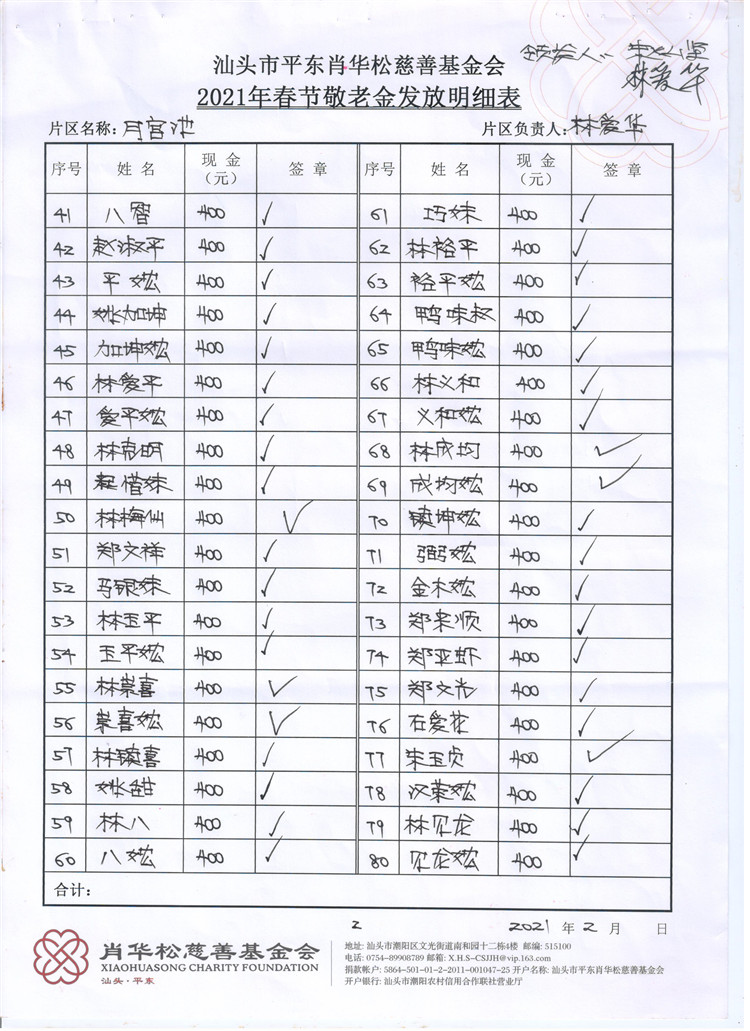 汕头市平东肖华松慈善基金会
2021年春节敬老金发放明细表
林爱华
片区名称：月宫池 片区负责人：林爱华
序号 姓名 现金（元） 签章 序号 姓名 现金（元） 签章
41 八智 400 ✓ 61 巧妹 400 ✓
42 赵淑平 400 ✓ 62 林裕平 400 ✓
43 平 400 ✓ 63 裕平 400 ✓
44 姚加坤 400 ✓ 64 鸭味叔 400 ✓
45 加坤 400 ✓ 65 鸭味 400 ✓
46 林爱平 400 ✓ 66 林义和 400 ✓
47 爱平 400 ✓ 67 义和 400 ✓
48 林 明 400 ✓ 68 林成均 400 ✓
49 惜妹 400 ✓ 69 成均 400 ✓
50 林梅仙 400 ✓ 70 镇坤 400 ✓
51 郑文祥 400 ✓ 71 400 ✓
52 马银妹 400 ✓ 72 金木 400 ✓
53 林玉平 400 ✓ 73 郑来顺 400 ✓
54 玉平 400 ✓ 74 郑亚虾 400 ✓
55 林崇喜 400 ✓ 75 郑文光 400 ✓
56 崇喜 400 ✓ 76 石爱花 400 ✓
57 林镇喜 400 ✓ 77 朱玉贞 400 ✓
58 姚钳 400 ✓ 78 汉荣 400 ✓
59 林八 400 ✓ 79 林见龙 400 ✓
60 八 400 ✓ 80 见龙 400 ✓
合计：
2 2021 年 2 月 日
肖华松慈善基金会
XIAOHUASONG CHARITY FOUNDATION
汕头·平东
地址: 汕头市潮阳区文光街道南和园十二栋4楼 邮编: 515100
电话: 0754-89908789 邮箱: X.H.S-CSJJH@vip.163.com
捐款帐户: 5864-501-01-2-2011-001047-25 开户名称: 汕头市平东肖华松慈善基金会
开户银行: 汕头市潮阳农村信用合作联社营业厅